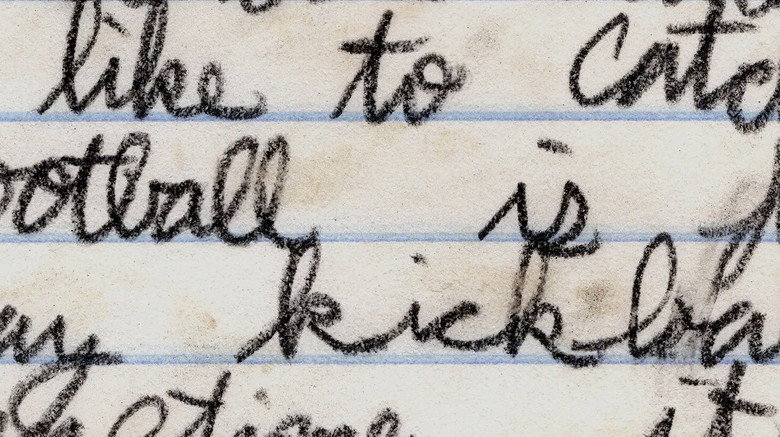 like to catc
ootball is
ay kickba
it